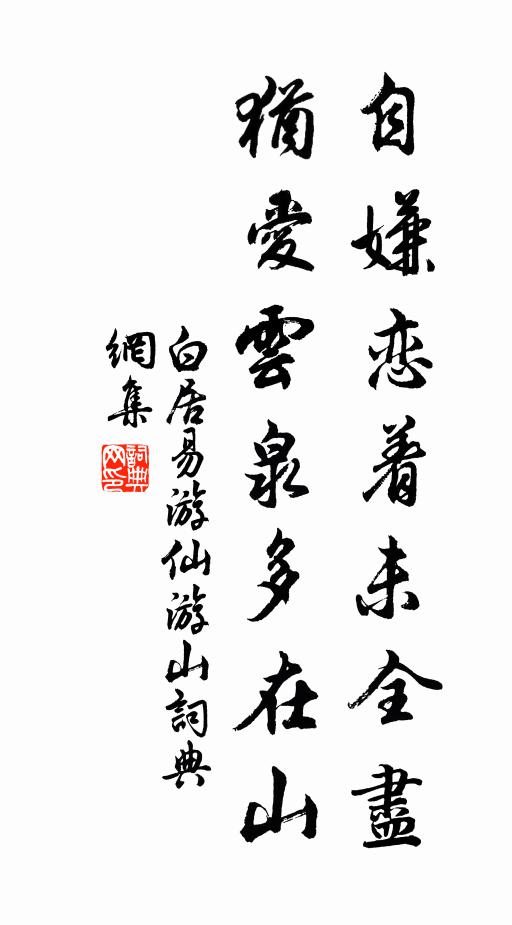 自嫌恋着未全盡
猶愛雲泉多在山
白居易游仙游山詞典
網集
詞典网印